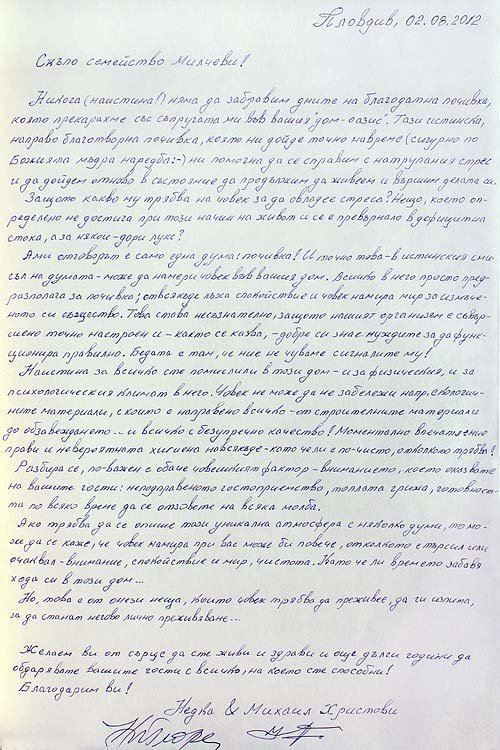 Пловдив, 02.08.2012
Скъпо семейство Милчеви!
Никога (наистина!) няма да забравим дните на благодатна почивка,
която прекарахме със съпругата ми във вашия "дом-оазис". Тази истинска,
направо благотворна почивка, която ни дойде точно навреме (сигурно по
Божията мъдра наредба:-) ни помогна да се справим с натрупания стрес
и да дойдем отново в състояние да продължим да живеем и вършим делата си.
Защото какво му трябва на човек за да овладее стреса? Нещо, което оп-
ределено не достига при този начин на живот и се е превърнало в дефицитна
стока, а за някои - дори лукс?
Ами отговорът е само една дума: почивка! И точно това - в истинския сми-
съл на думата - може да намери човек във вашия дом. Всичко в него просто пред-
разполага за почивка; отвсякъде лъха спокойствие и човек намира мир за измъче-
ното си същество. Това става несъзнателно, защото нашият организъм е съвър-
шено точно настроен и - както се казва, - добре си знае нуждите за да функ-
ционира правилно. Бедата е там, че ние не чуваме сигналите му!
Наистина за всичко сте помислили в този дом - и за физическия, и за
психологическия климат в него. Човек не може да не забележи напр. екологич-
ните материали, с които е направено всичко - от строителните материали
до обзавеждането... и всичко с безупречно качество! Моментално впечатление
прави и невероятната хигиена навсякъде - като че ли е по-чисто, отколкото трябва!
Разбира се, по-важен е обаче човешкият фактор - вниманието, което оказвате
на вашите гости: неподправеното гостоприемство, топлата грижа, готовност-
та по всяко време да се отзовете на всяка молба.
Ако трябва да се опише тази уникална атмосфера с няколко думи, то мо-
же да се каже, че човек намира при вас може би повече, отколкото е търсил или
очаквал - внимание, спокойствие и мир, чистота. Като че ли времето забавя
хода си в този дом...
Но, това е от онези неща, които човек трябва да преживее, да ги изпита,
за да станат негово лично преживяване...
Желаем ви от сърце да сте живи и здрави и още дълги години да
обдарявате вашите гости с всичко, на което сте способни!
Благодарим ви!
Недка & Михаил Христови